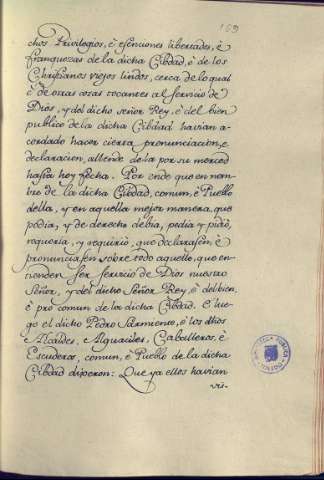 169
chos Privilegios, è esenciones libertades, è
franquezas de la dicha Cibdad, è de los
Christianos viejos lindos, cerca de lo qual
è de otras cosas tocantes al servicio de
Dios, y del dicho señor Rey, è del bien
publico de la dicha Cibdad havian a-
cordado hacer cierta pronunciacion, e
declaracion, allende de la por su merced
hasta hoy fecha. Por ende que en nom-
bre de la dicha Cibdad, comun, è Pueblo
della, y en aquella mejor manera, que
podia, y de derecho debia, pedia y pidiò,
requeria, y requiriò, que declarasen, è
pronunciasen sobre todo aquello, que en-
tienden ser servicio de Dios nuestro
Señor, y del dicho Señor Rey, è del bien,
è pro comun de la dicha Cibdad. E lue-
go el dicho Pedro Sarmiento, è los dhõs
Alcaldes, Alguaciles, Caballeros, è
Escuderos, comun, è Pueblo de la dicha
Cibdad dijeron: Que ya ellos havian
vis-